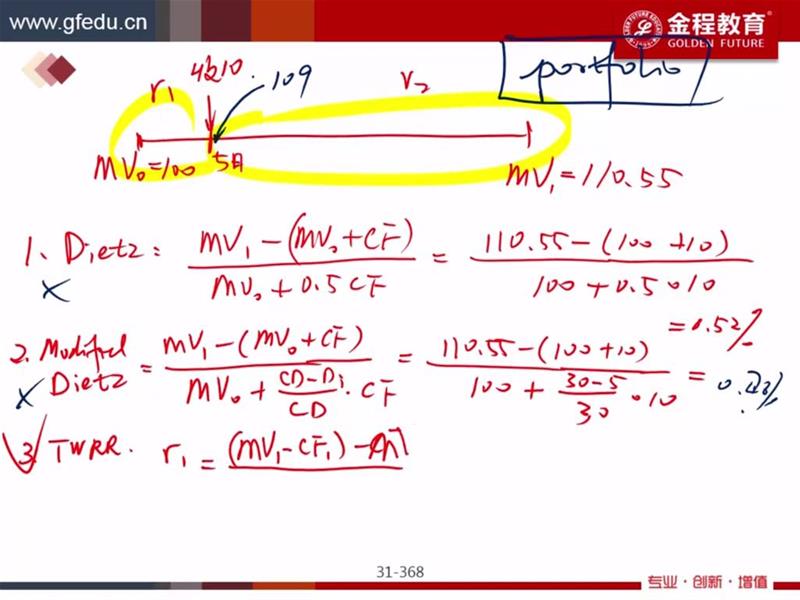 www.gfedu.cn
金程教育
GOLDEN FUTURE
收10.
109
r₁
r₂
portfolio
MV₀=100
5日
MV₁=110.55
1、Dietz: (MV₁-(MV₀+CF))/(MV₀+0.5CF) = (110.55-(100+10))/(100+0.5*10)
=0.52%
2. Modified Dietz = (MV₁-(MV₀+CF))/(MV₀+(CD-Di)/CD·CF) = (110.55-(100+10))/(100+(30-5)/30*10) =
3 TWRR. r₁ = (MV₁-CF₁)-
31-368
专业·创新·增值